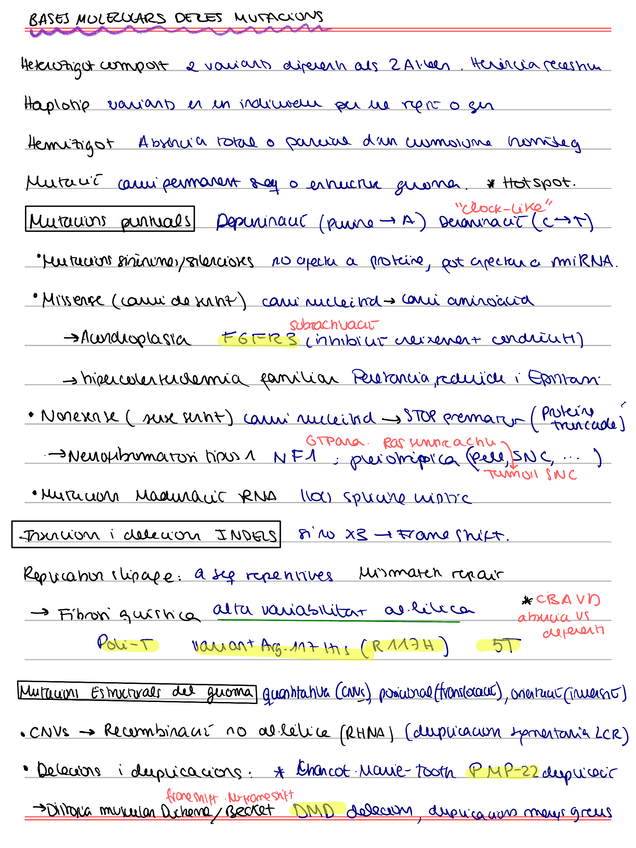 BASES MOLECULARS DE LES MUTACIONS
Heterozigot compost 2 variants diferents als 2 Al·lels. Herència recessiva
Haplotip variants en un individu per una regió o gen
Hemizigot Absència total o parcial d'un cromosoma homòleg
Mutació canvi permanent seq o estructura genoma. * Hotspot.
"clock-like"
Mutacions puntuals Depurinació (purine → A) Desaminació (C → T)
• Mutacions sinònimes/silencioses no afecta a proteïna, pot afectar a miRNA.
• Missense (canvi de sentit) canvi nucleòtid → canvi aminoàcid
sobreactivació
→ Acondroplàsia FGFR3 (inhibició creixement condròcits)
→ hipercolesterolemia familiar Penetrància reduïda i Epistasi
• Nonsense (sense sentit) canvi nucleòtid → STOP prematur (proteïna truncada)
GTPasa. Ras sempre activa
→ Neurofibromatosi tipus 1 NF1 : pleiotròpica (pell, SNC, ...)
Tumors SNC
• Mutacions Maduració RNA llocs splicing críptic
Insercions i delecions INDELS si no x3 → Frameshift.
Replication slipage: a seq repetitives Mismatch repair
→ Fibrosi quística alta variabilitat al·lèlica
* CBAVD
absència VS
deferents
Poli-T variant Arg-117-His (R117H) 5T
Mutacions Estructurals del genoma quantitativa (CNVs), posicional (translocació), orientació (inversió)
• CNVs → Recombinació no al·lèlica (RHNA) (duplicacions segmentàries LCR)
• Delecions i duplicacions: * Charcot-Marie-Tooth PMP-22 duplicació
frameshift No frameshift
→ Distròfia muscular Duchenne/Becker DMD delecions, duplicacions menys greus